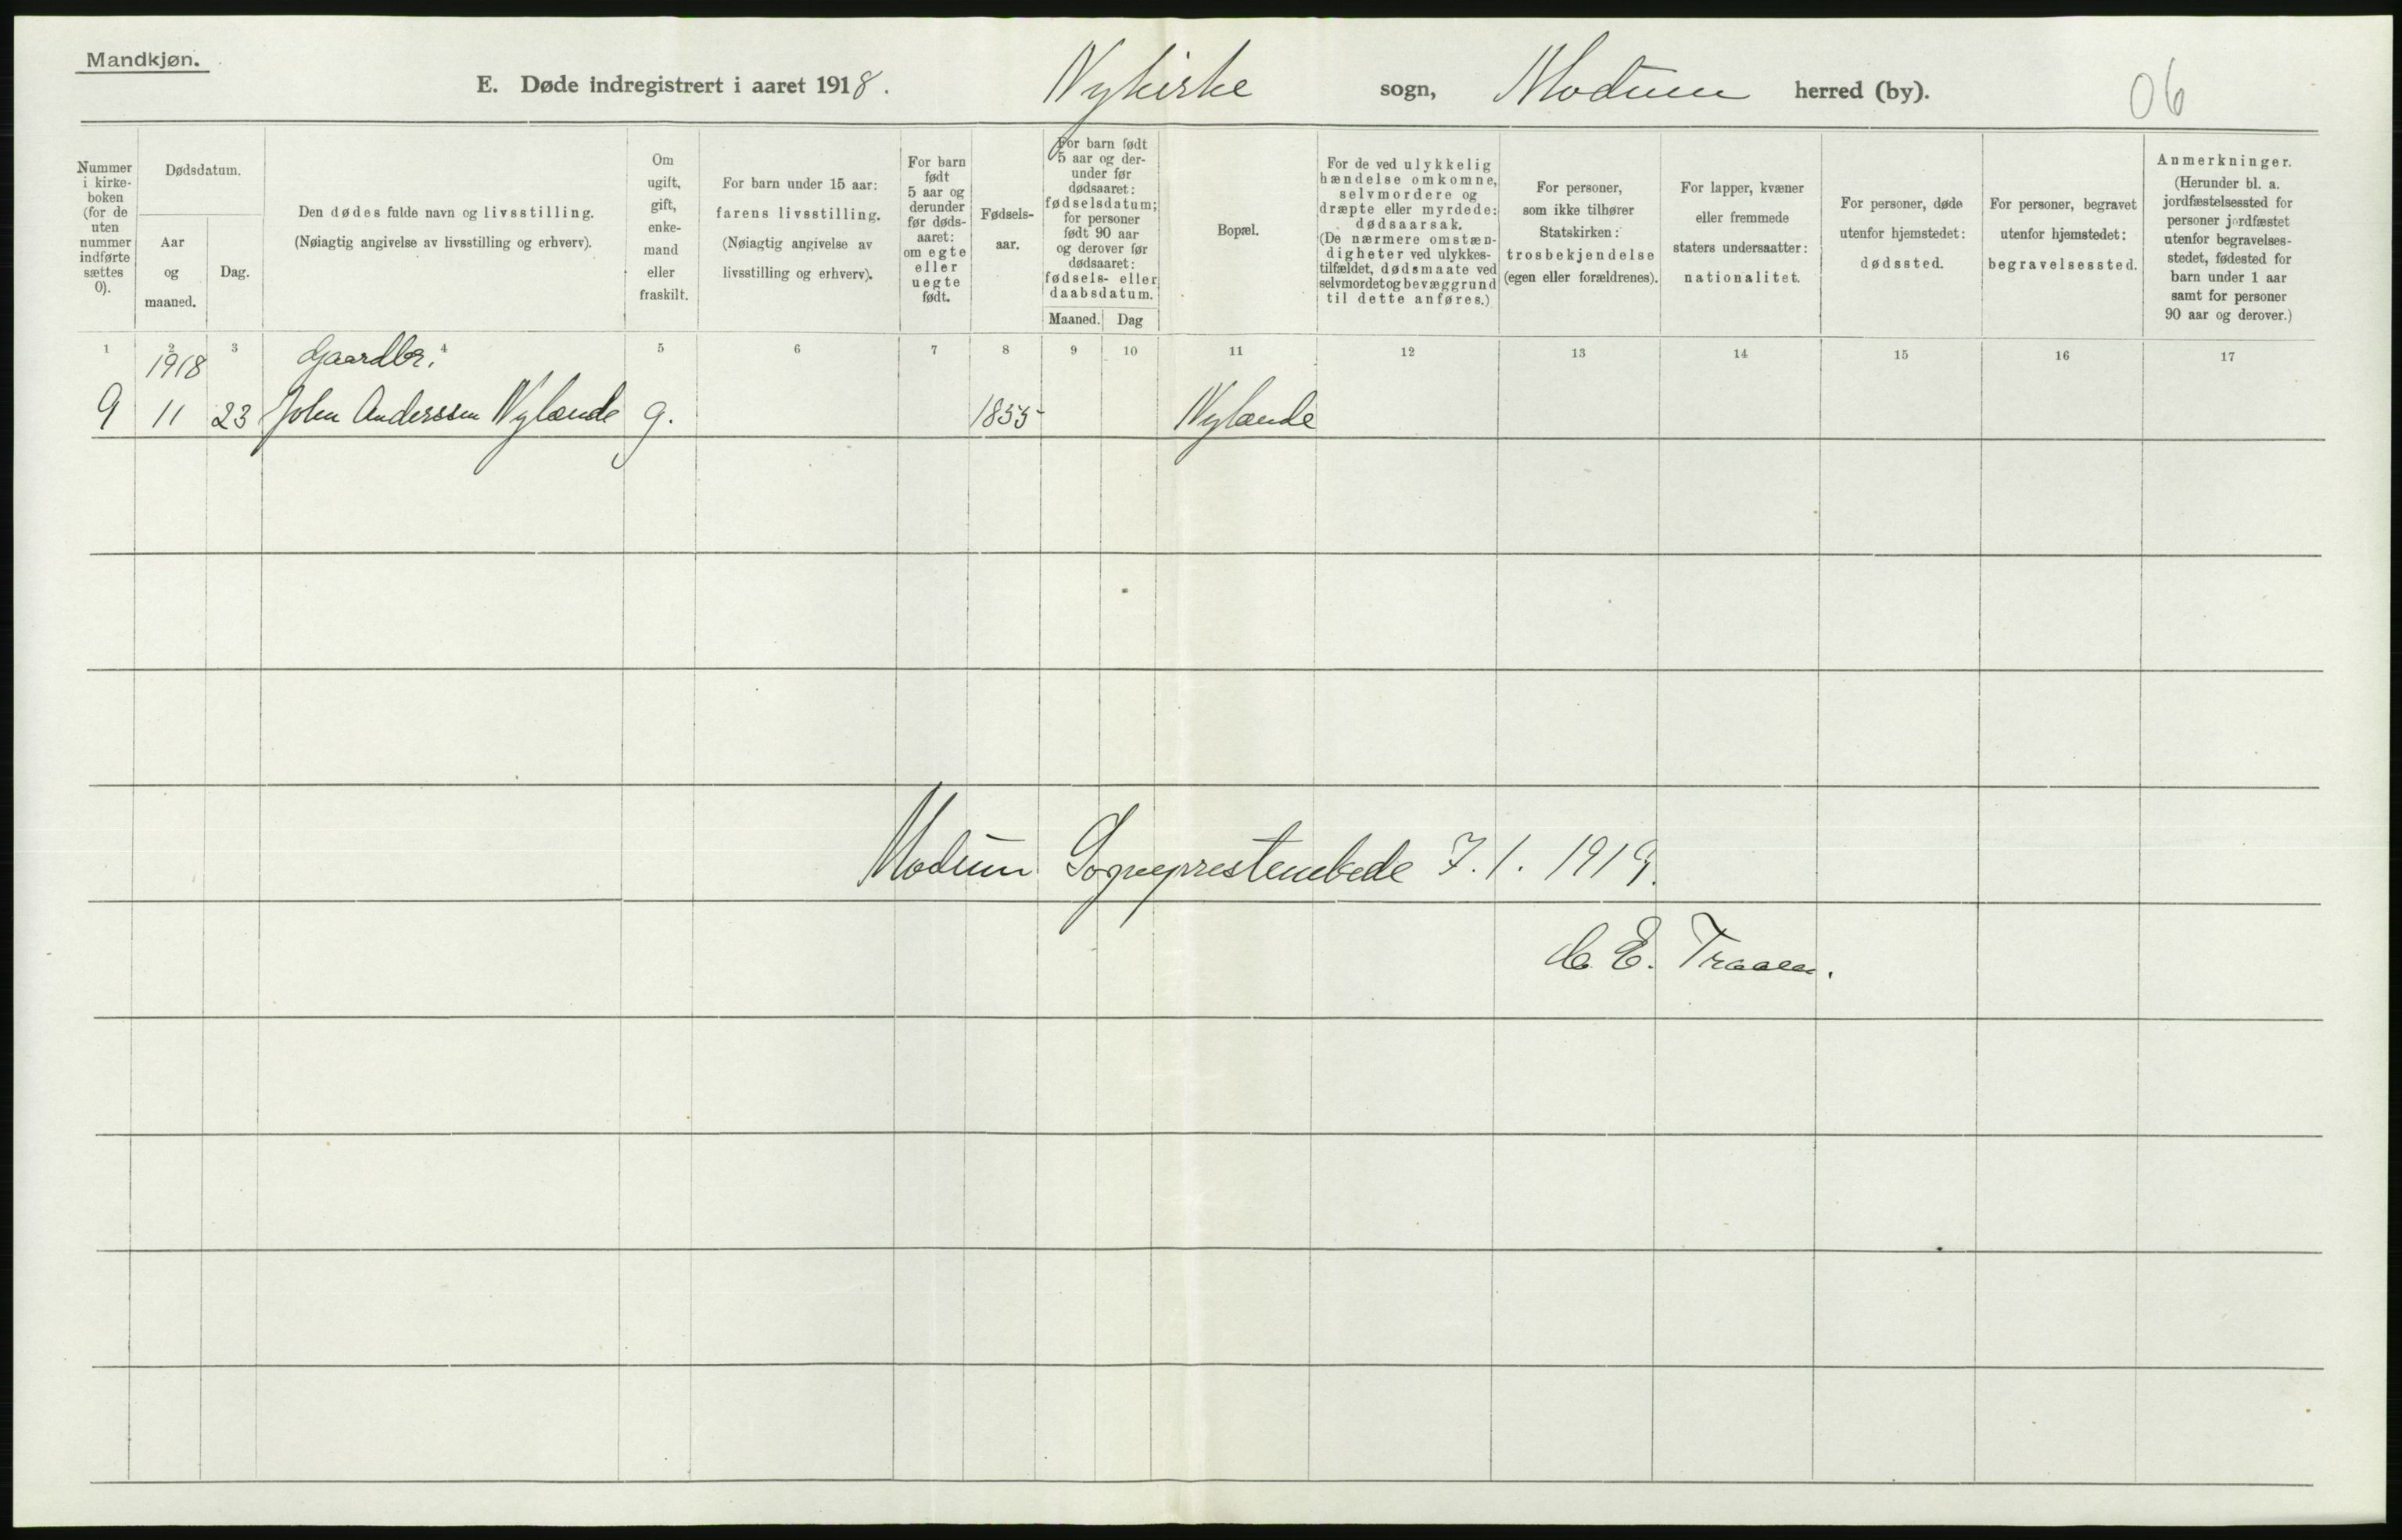 Mandkjøn.
E. Døde indregistrert i aaret 1918. Nykirke sogn, Modum herred (by). 06
Nummer i kirke- boken (for de uten nummer indførte sættes 0).
Dødsdatum.
Aar og maaned.
Dag.
Den dødes fulde navn og livsstilling.
(Nøiagtig angivelse av livsstilling og erhverv).
Om ugift, gift, enke- mand eller fraskilt.
For barn under 15 aar:
farens livsstilling.
(Nøiagtig angivelse av
livsstilling og erhverv).
For barn født 5 aar og derunder før døds- aaret: om egte eller uegte født.
Fødsels- aar.
For barn født 5 aar og der- under før dødsaaret: fødselsdatum; for personer født 90 aar og derover før dødsaaret: fødsels- eller daabsdatum.
Maaned. Dag
Bopæl.
For de ved ulykkelig hændelse omkomne, selvmordere og dræpte eller myrdede: dødsaarsak. (De nærmere omstæn- digheter ved ulykkes- tilfældet, dødsmaate ved selvmordet og bevæggrund til dette anføres.)
For personer, som ikke tilhører Statskirken: trosbekjendelse (egen eller forældrenes).
For lapper, kvæner eller fremmede staters undersaatter: nationalitet.
For personer, døde utenfor hjemstedet: dødssted.
For personer, begravet utenfor hjemstedet: begravelsessted.
Anmerkninger.
(Herunder bl. a. jordfæstelsessted for personer jordfæstet utenfor begravelses- stedet, fødested for barn under 1 aar samt for personer 90 aar og derover.)
1 2 3 4 5 6 7 8 9 10 11 12 13 14 15 16 17
1918 Gaardbr.
9 11 23 John Anderssen Nylænde g. 1855 Nylænde
Modum Sogneprestembede 7.1.1919.
C. E. Traaen.